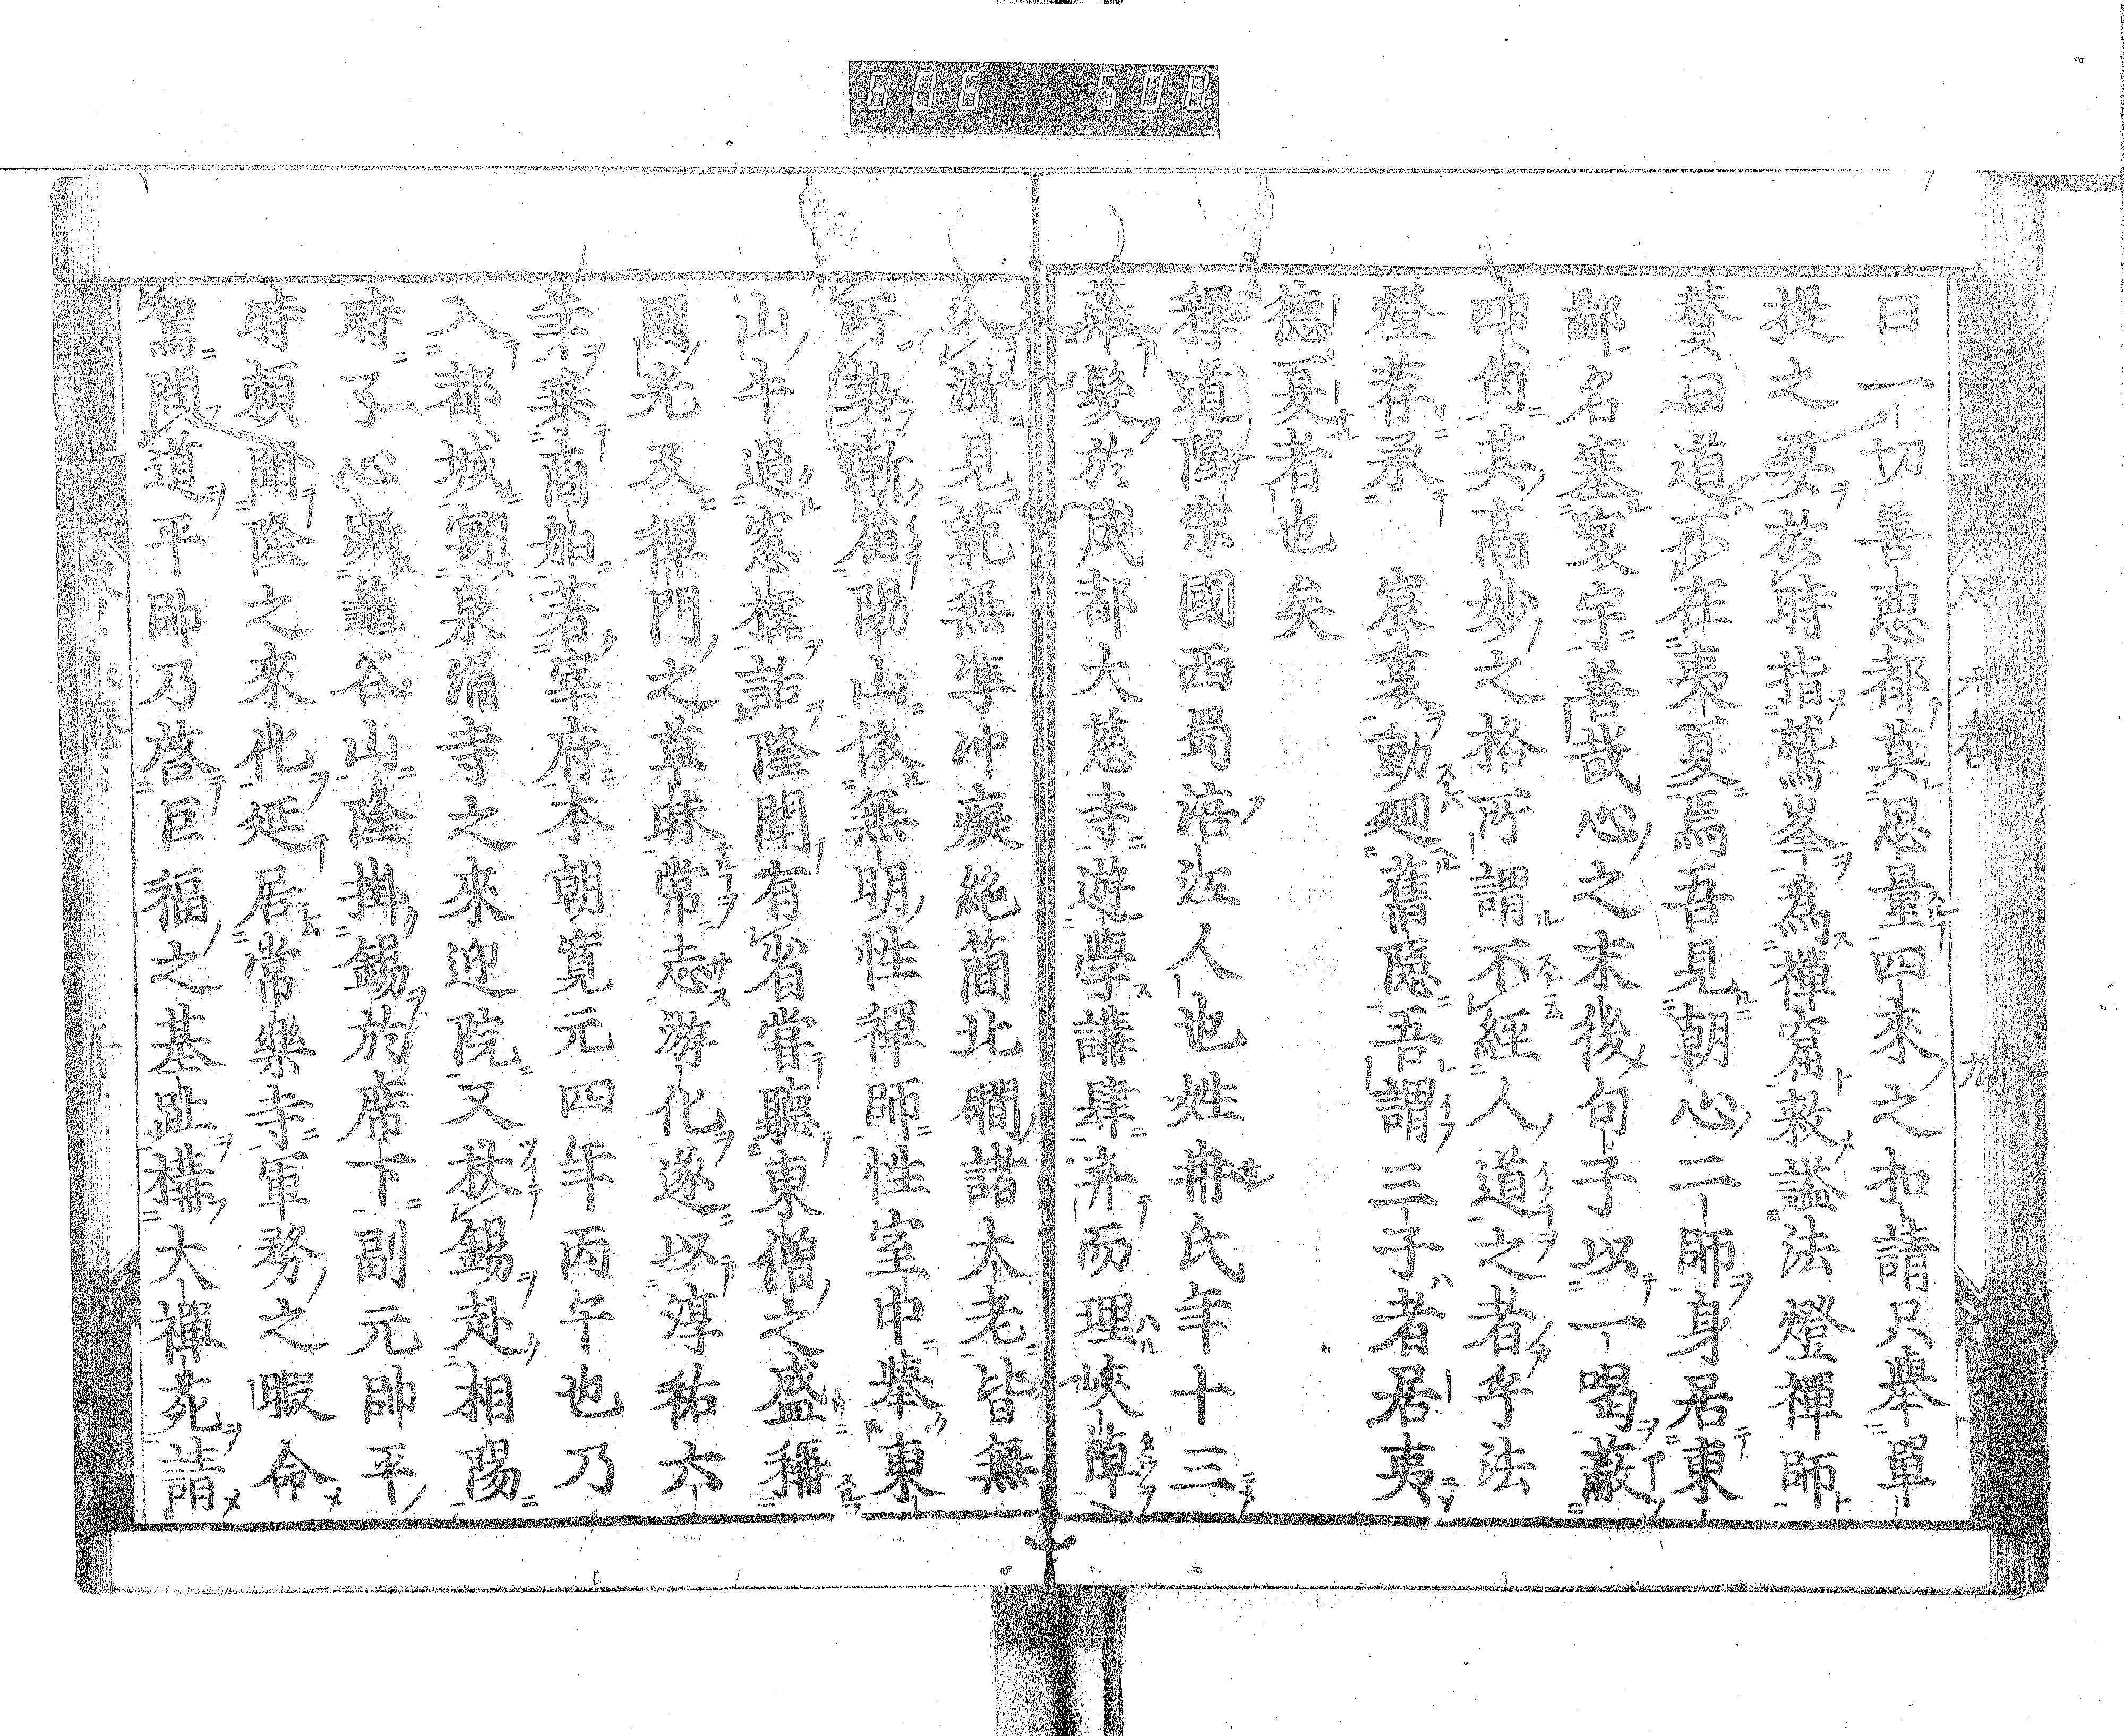 606 508
曰一切善惡都莫思量四來之扣請只舉單
提之要於時指鷲峯爲禪窟敕謚法燈禪師
賛曰道無在夷夏焉吾見朝心二師身居東
鄙名塞寰宇善哉心之末後句子以一喝蔽
四句其高妙之格所謂不經人道之者乎法
燈荐承宸裏動廻舊隱吾謂三子者居夷
德夏者也矣
釋道隆宋國西蜀涪江人也姓冉氏年十三
薙髮於成都大慈寺遊學講肆弃而理峽棹
入淛見範無準冲癡絶簡北磵諸大老皆無
所契漸届陽山依無明性禪師性室中舉東
山牛過窓櫺話隆聞有省甞聽東僧之盛稱
國光及禪門之草昧常志游化遂以淳祐六
年乘商舶著宰府本朝寛元四年丙午也乃
入都城寓泉涌寺之來迎院又杖錫赴相陽
時了心踞龜谷山隆掛錫於席下副元帥平
時頼聞隆之來化延居常樂寺軍務之暇命
駕問道平帥乃啓巨福之基趾構大禪苑請
九